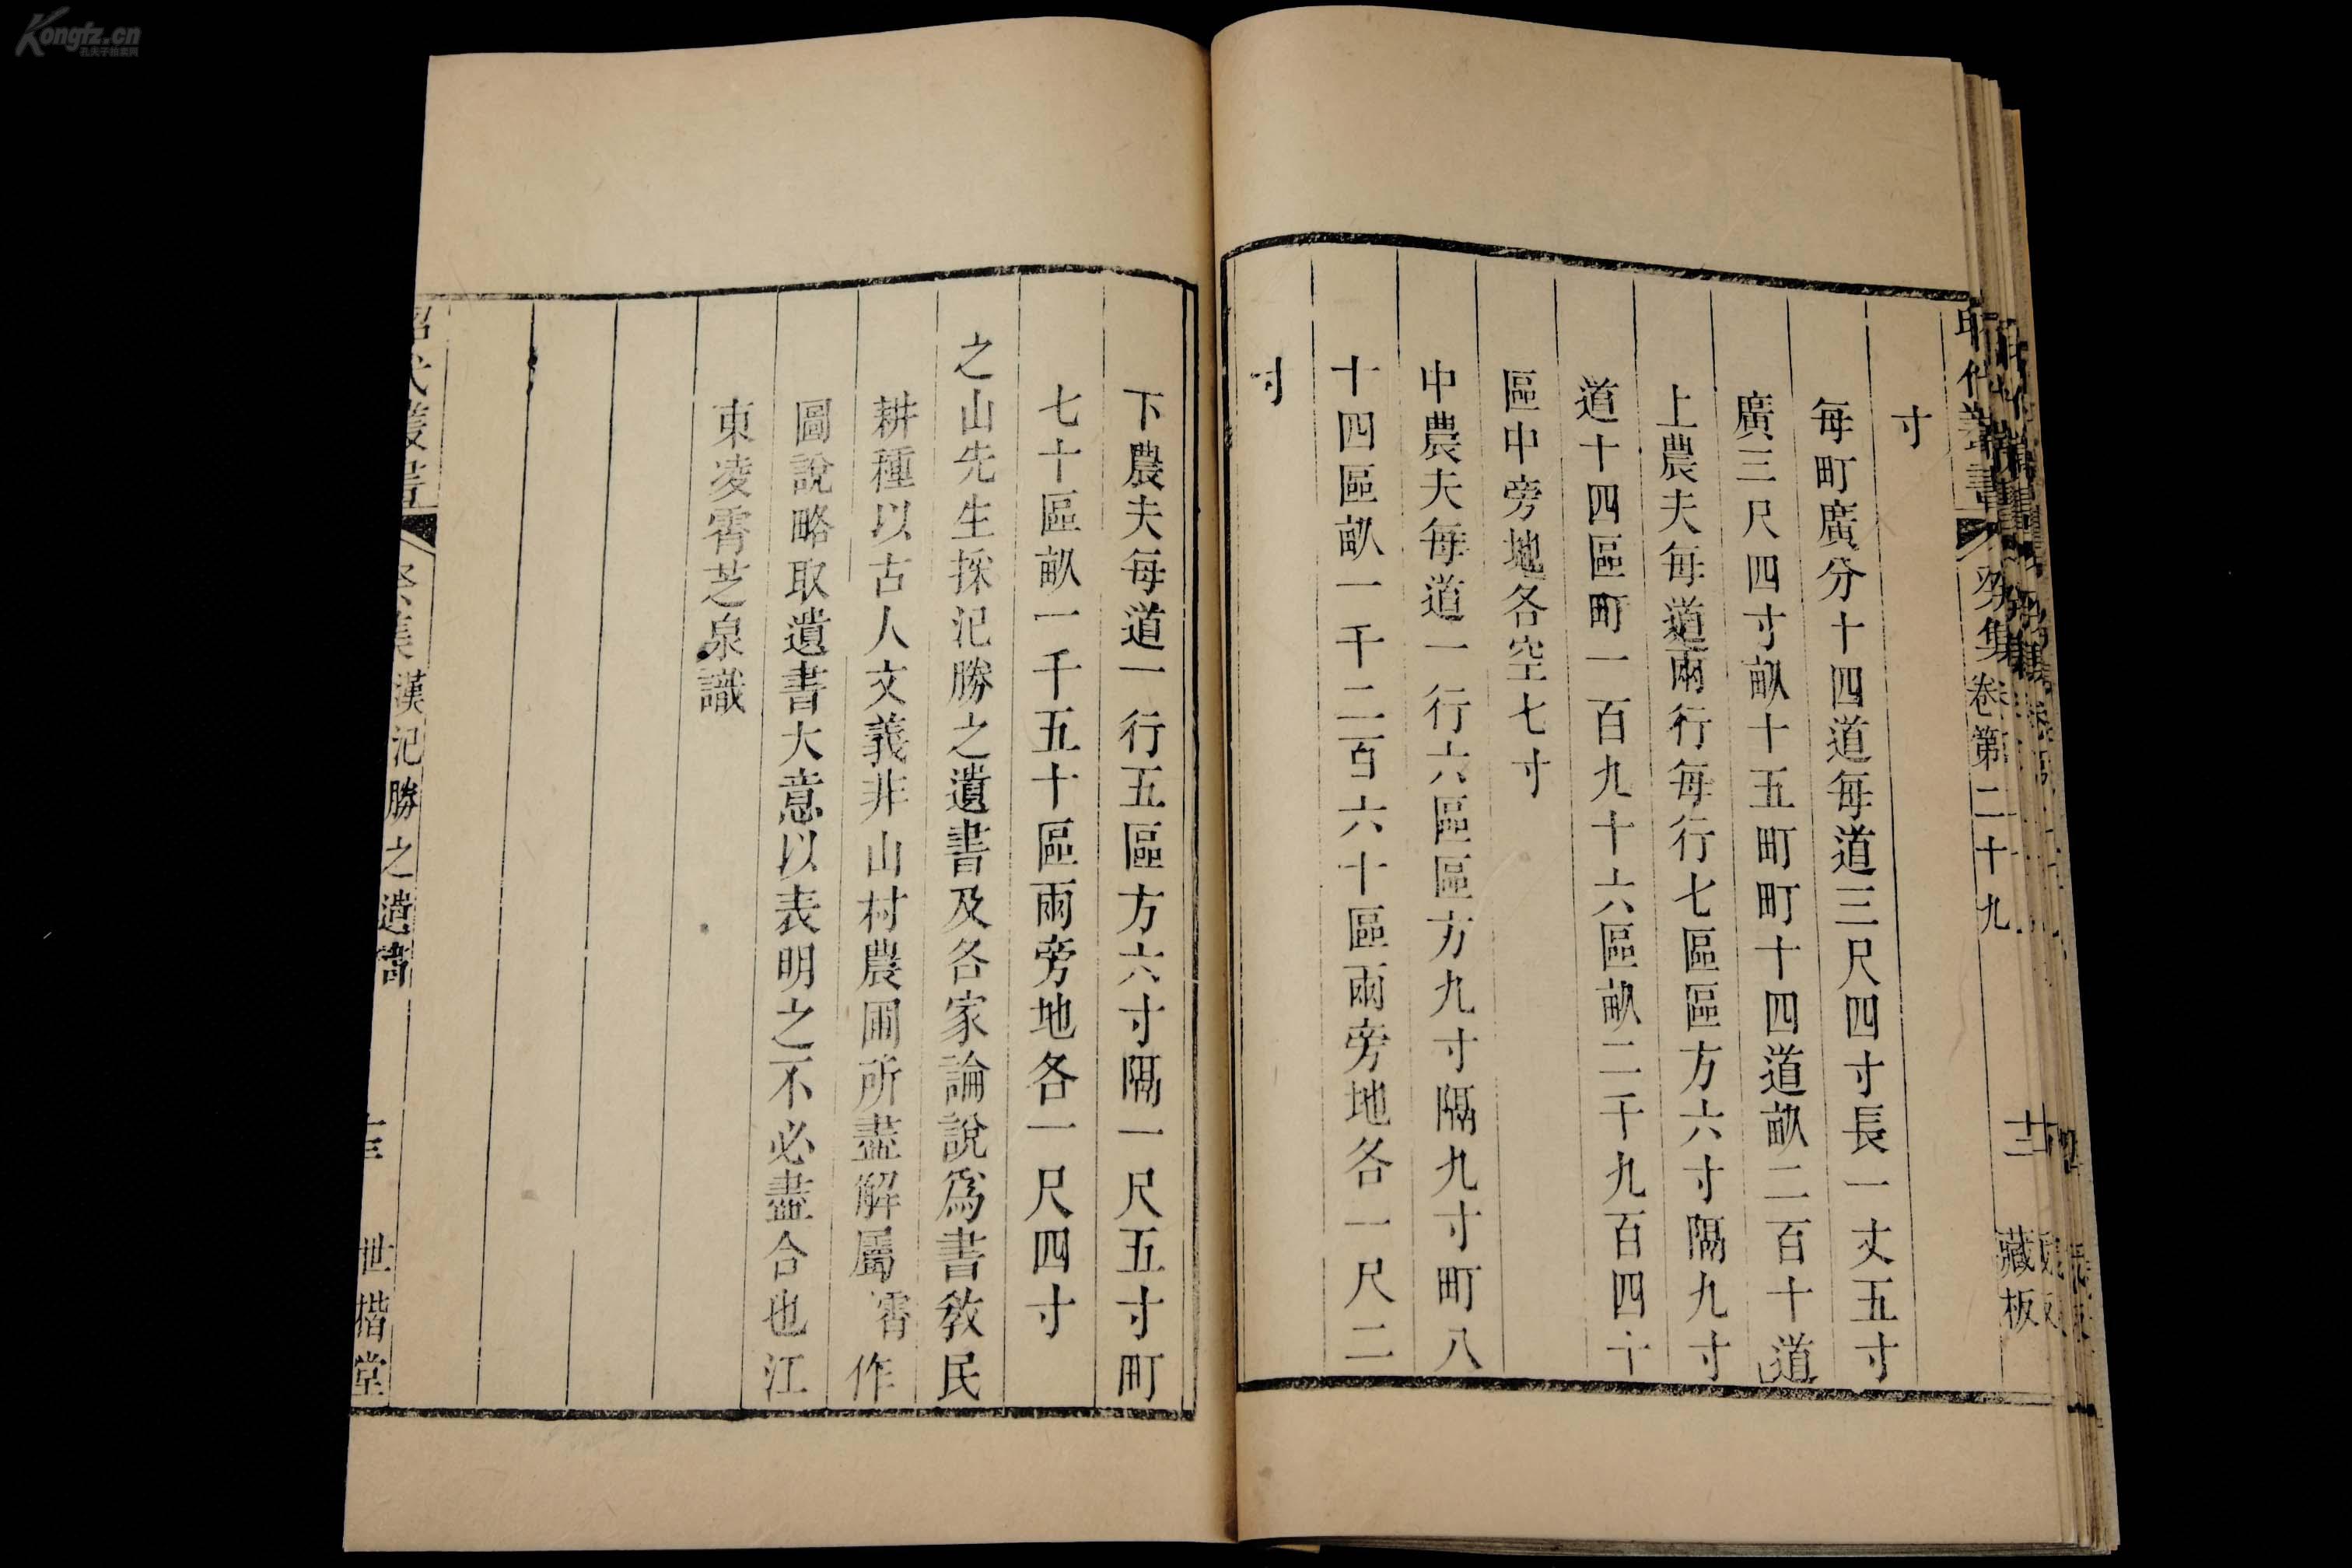 寸
每町廣分十四道每道三尺四寸長一丈五寸
廣三尺四寸畝十五町町十四道畝二百十道
上農夫每道兩行每行七區區方六寸隔九寸
道十四區町一百九十六區畝二千九百四十
區中旁地各空七寸
中農夫每道一行六區區方九寸隔九寸町八
十四區畝一千二百六十區兩旁地各一尺二
寸
下農夫每道一行五區方六寸隔一尺五寸町
七十區畝一千五十區兩旁地各一尺四寸
之山先生採氾勝之遺書及各家論說爲書教民
耕種以古人文義非山村農圃所盡解屬霄作
圖說略取遺書大意以表明之不必盡合也江
東凌霄芝泉識
昭代叢書 癸集 漢氾勝之遺書 世楷堂
昭代叢書 癸集卷第二十九 藏板
Kongfz.cn
孔夫子旧书网